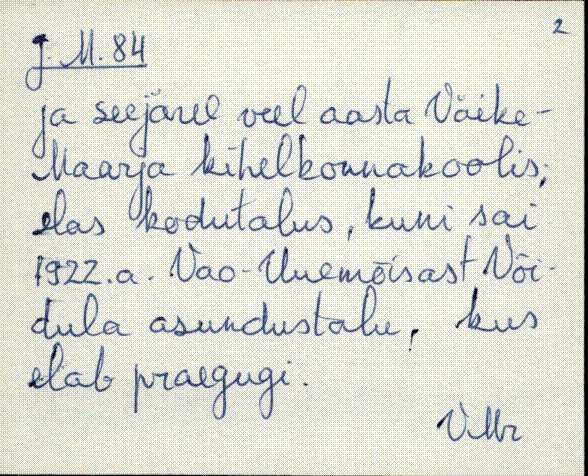 2
J. M. 84
ja seejärel veel aasta Väike-
Maarja kihelkonnakoolis;
elas kodutalus, kuni sai
1922.a. Vao-Uuemõisast Või-
dula asundustalu, kus
elab praegugi.
VMr